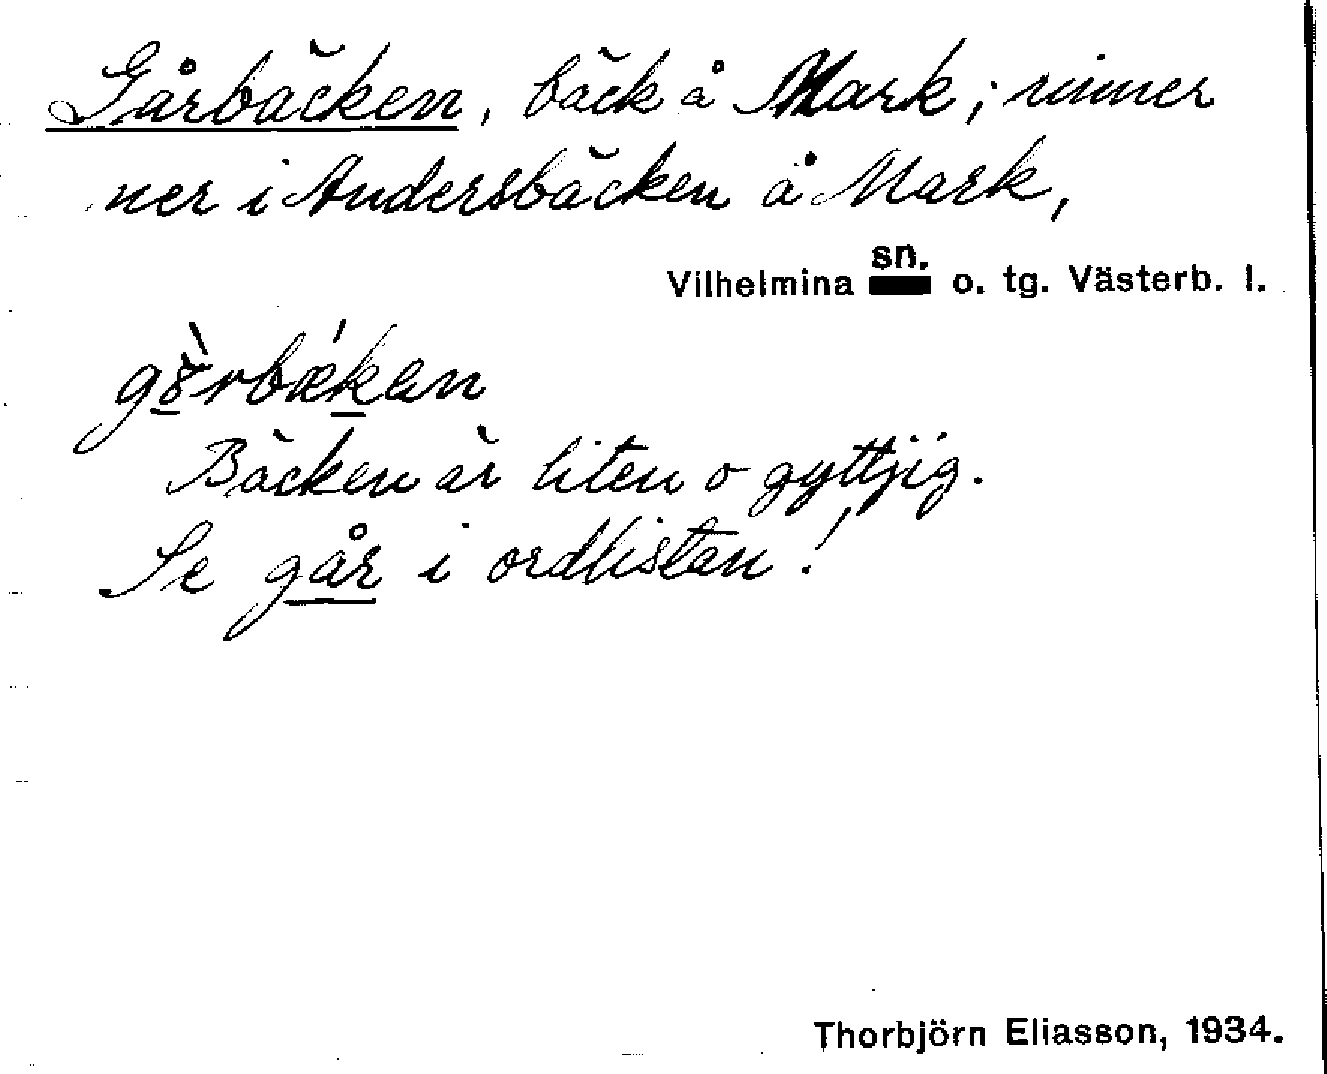 Gårbäcken, bäck å Mark; rinner
ner i Andersbäcken å Mark,
Vilhelmina sn. o. tg. Västerb. l.
gɔ̀rbǽkan
Bäcken är liten o gyttjig.
Se går i ordlistan!
Thorbjörn Eliasson, 1934.